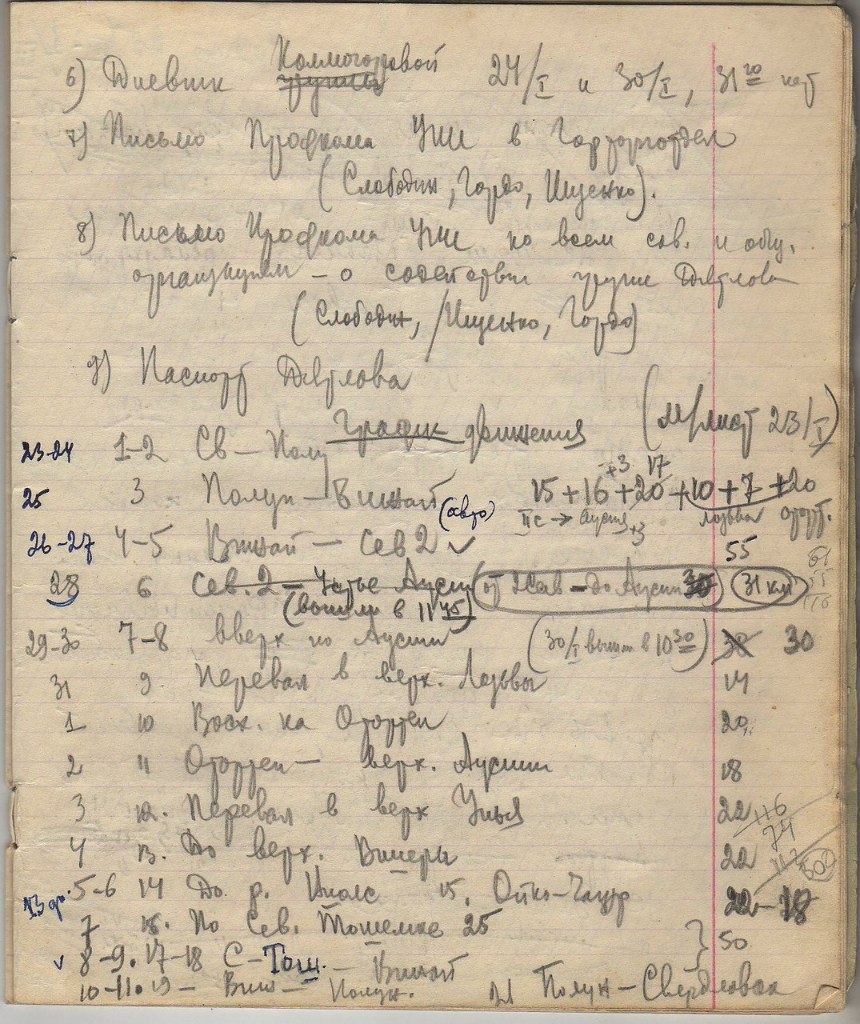 6) Дневник группы Колмогоровой 24/I и 30/I, 31го нет
7) Письмо Профкома УПИ в
(Слободин, Гордо, Ищенко).
8) Письмо Профкома УПИ ко всем сов. и общ.
организациям – о содействии группе Дятлова
(Слободин, Ищенко, Гордо)
9) Паспорт Дятлова
График движения (М/лист 23/I)
23-24 1-2 Св – Полу
25 3 Полун – Вижай (авто) 15+16+20+10+7+20
+3 17
IIс → Ауспия +3 Лозьва Оторт.
26-27 4-5 Вижай – Сев 2 ✓ 55
28 6 Сев. 2 – Устье Ауспии (от 2 Сев – до Ауспии 35) 31 км
(вышли в 11 45)
29-30 7-8 вверх по Ауспии (30/I вышли в 10 30) 30 30
31 9 Перевал в верх. Лозьвы 14
1 10 Восх. на Отортен 20
2 11 Отортен – верх. Ауспии 18
3 12. Перевал в верх Унья 22
116
74
4 13. До верх. Вишеры 22
302
5-6 14 До р. Ниолс 15. Ойко-Чакур 22-18
13
7 16. По Сев. Тошемке 25
} 50
✓ 8-9. 17-18 С-Тош. – Вижай
10-11. 19 – Виж – Полун. 21 Полун – Свердловск